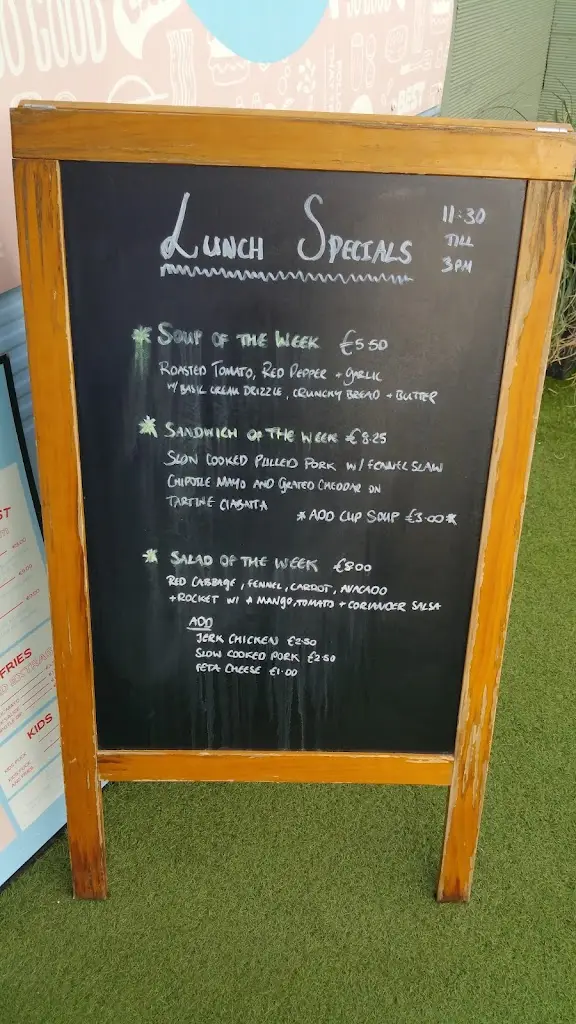 SO GOOD
BEST
LUNCH SPECIALS
11:30
TILL
3PM
SOUP OF THE WEEK €5.50
ROASTED TOMATO, RED PEPPER + GARLIC
W/ BASIL CREAM DRIZZLE, CRUNCHY BREAD + BUTTER
SANDWICH OF THE WEEK €8.25
SLOW COOKED PULLED PORK W/ FENNEL SLAW
CHIPOTLE MAYO AND GRATED CHEDDAR ON
TARTINE CIABATTA
*ADD CUP SOUP €3.00*
SALAD OF THE WEEK €8.00
RED CABBAGE, FENNEL, CARROT, AVACADO
+ ROCKET W/ A MANGO, TOMATO + CORIANDER SALSA
ADD
JERK CHICKEN €2.50
SLOW COOKED PORK €2.50
FETA CHEESE €1.00
FRIES
KIDS